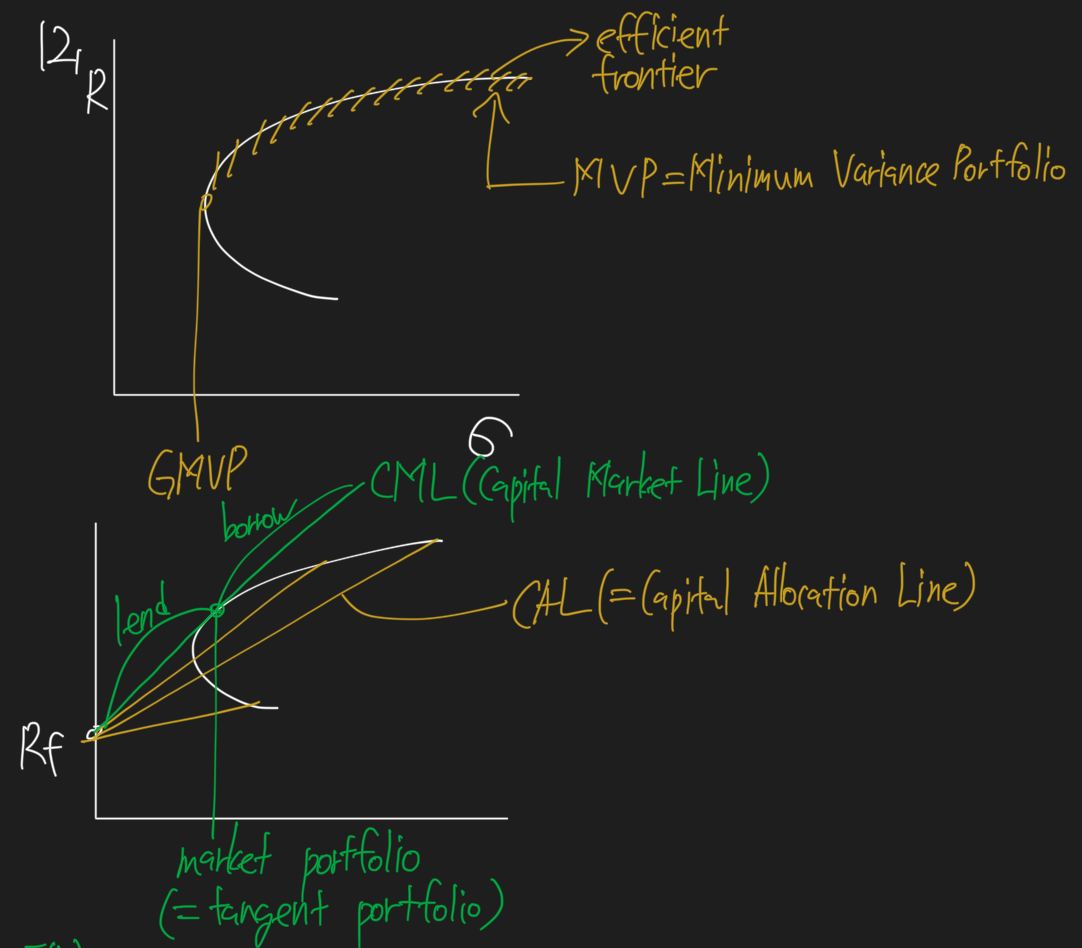 12,
R
efficient
frontier
MVP=Minimum Variance Portfolio
σ
GMVP
CML(Capital Market Line)
borrow
lend
CAL(=Capital Allocation Line)
Rf
market portfolio
(=tangent portfolio)